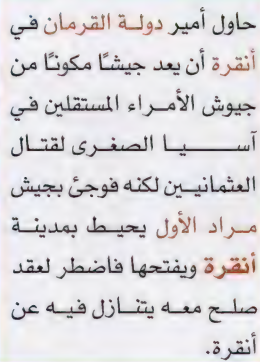 حاول أمير دولة القرمان في
أنقرة أن يعد جيشًا مكونًا من
جيوش الأمراء المستقلين في
آسيا الصغرى لقتال
العثمانيين لكنه فوجئ بجيش
مراد الأول يحيط بمدينة
أنقرة ويفتحها فاضطر لعقد
صلح معه يتنازل فيه عن
أنقرة.